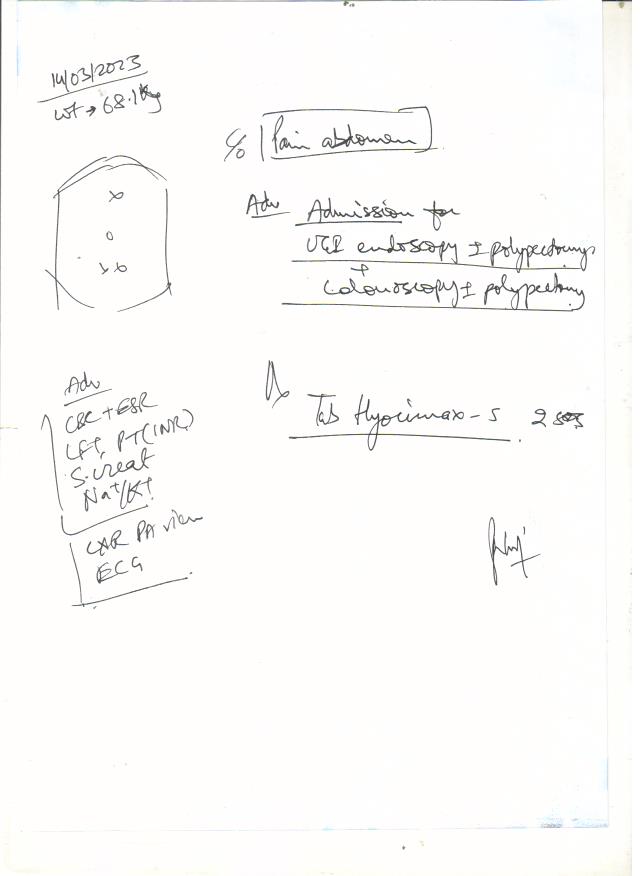 14/03/2023
wt → 68.1 Kg
c/o Pain abdomen
Adv Admission for
UGI endoscopy ± polypectomy
+
Colonoscopy ± polypectomy
Adv
CBC + ESR
LFT, PT(INR)
S. creat
Na+/K+
CXR PA view
ECG
Rx
Tab Hyocimax-S